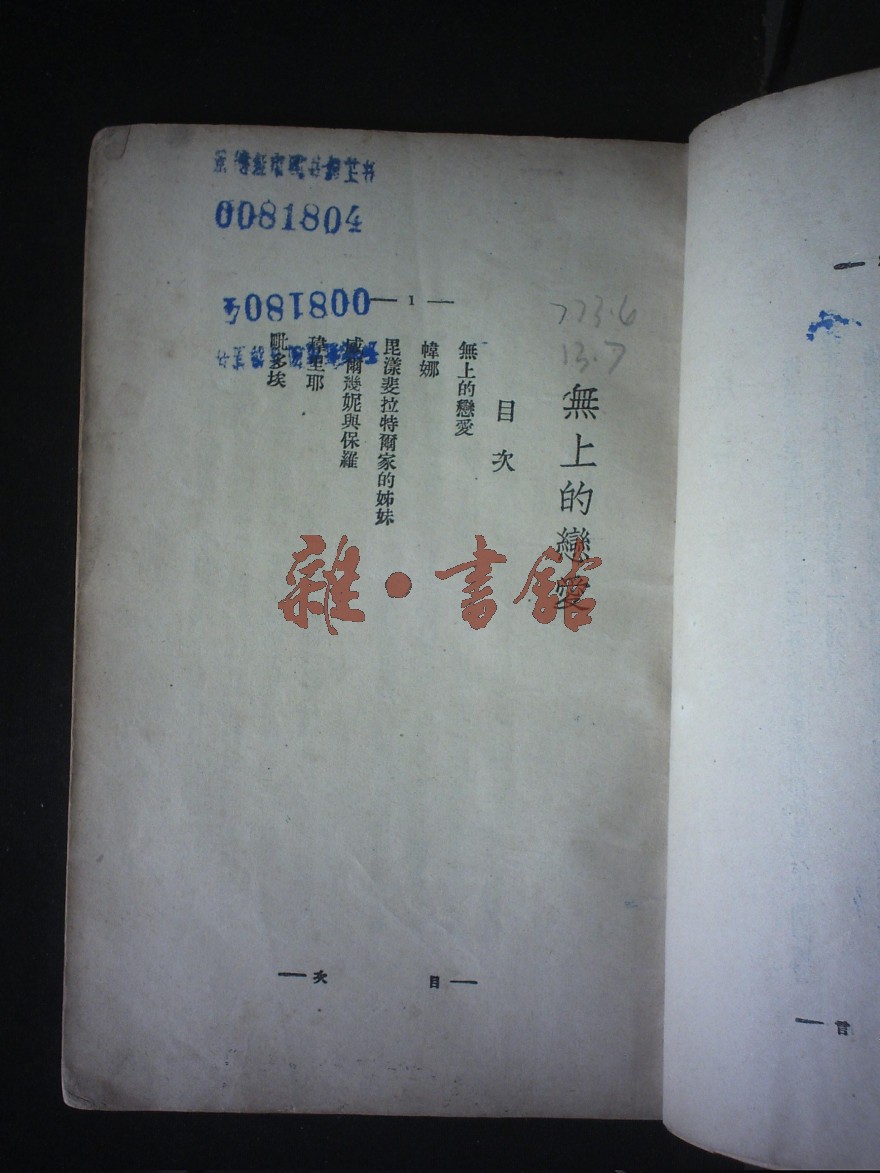 無上的戀愛
目次
無上的戀愛
幃娜
毘漾斐拉特爾家的姊妹
威爾幾妮與保羅
瑋里耶
毗多埃
— 1 —
0081804
0081804
773.6
13.7
雜·書館
— 次 目 —
— 言